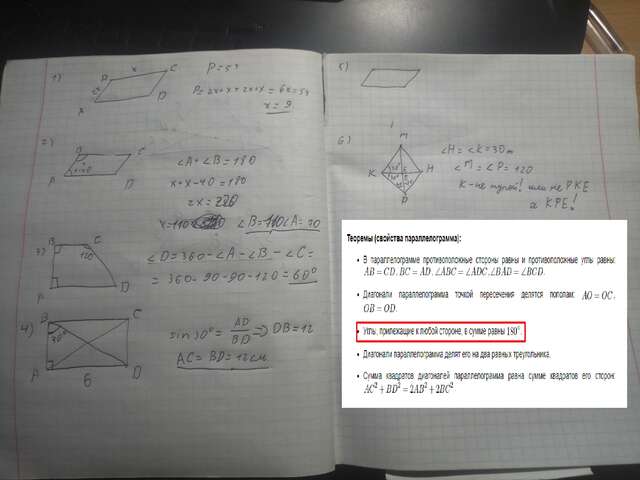 1)
x
B
C
2x
A
D
P=54
P=2x+x+2x+x=6x=54
x=9
2)
A
D
∠A+∠B=180
x+x-40=180
2x=220
x=110
∠B=110 ∠A=70
3)
B
C
120
A
D
∠D=360-∠A-∠B-∠C=
=360-90-90-120=60°
4)
B
C
30°
A
6
D
sin30°= AD/BD => DB=12
AC=BD=12см
5)
6)
M
K
E
H
P
∠H=∠K=30
∠M=∠P=120
K-не тупой! или не PKE
а KPE!
Теоремы (свойства параллелограмма):
• В параллелограмме противоположные стороны равны и противоположные углы равны:
AB = CD, BC = AD, ∠ABC = ∠ADC, ∠BAD = ∠BCD.
• Диагонали параллелограмма точкой пересечения делятся пополам: AO = OC,
OB = OD.
• Углы, прилежащие к любой стороне, в сумме равны 180°.
• Диагонали параллелограмма делят его на два равных треугольника.
• Сумма квадратов диагоналей параллелограмма равна сумме квадратов его сторон:
AC² + BD² = 2AB² + 2BC²